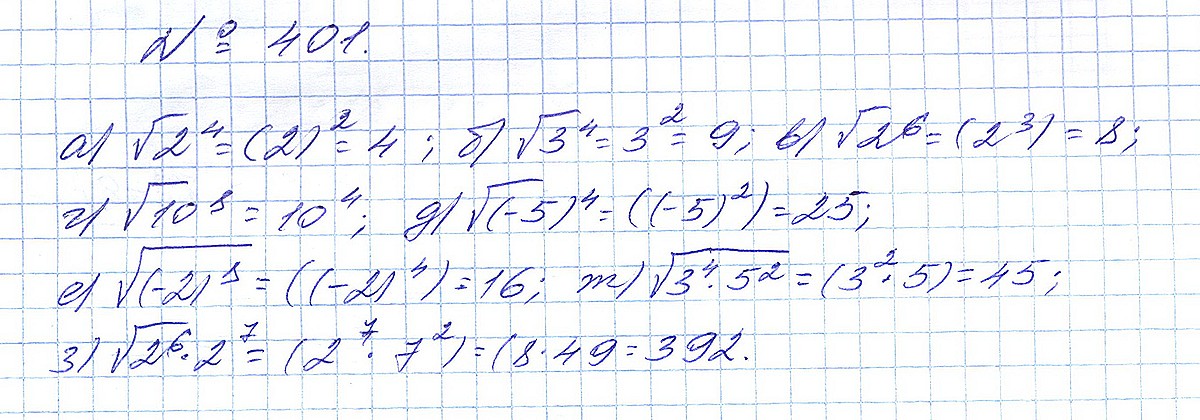 № 401.
а) √2⁴ = (2)² = 4; б) √3⁴ = 3² = 9; в) √2⁶ = (2³) = 8;
г) √10⁸ = 10⁴; д) √(-5)⁴ = ((-5)²) = 25;
е) √(-2)⁸ = ((-2)⁴) = 16; ж) √3⁴·5² = (3²·5) = 45;
з) √2⁶·2⁷ = (2⁷·7²) = (8·49 = 392.